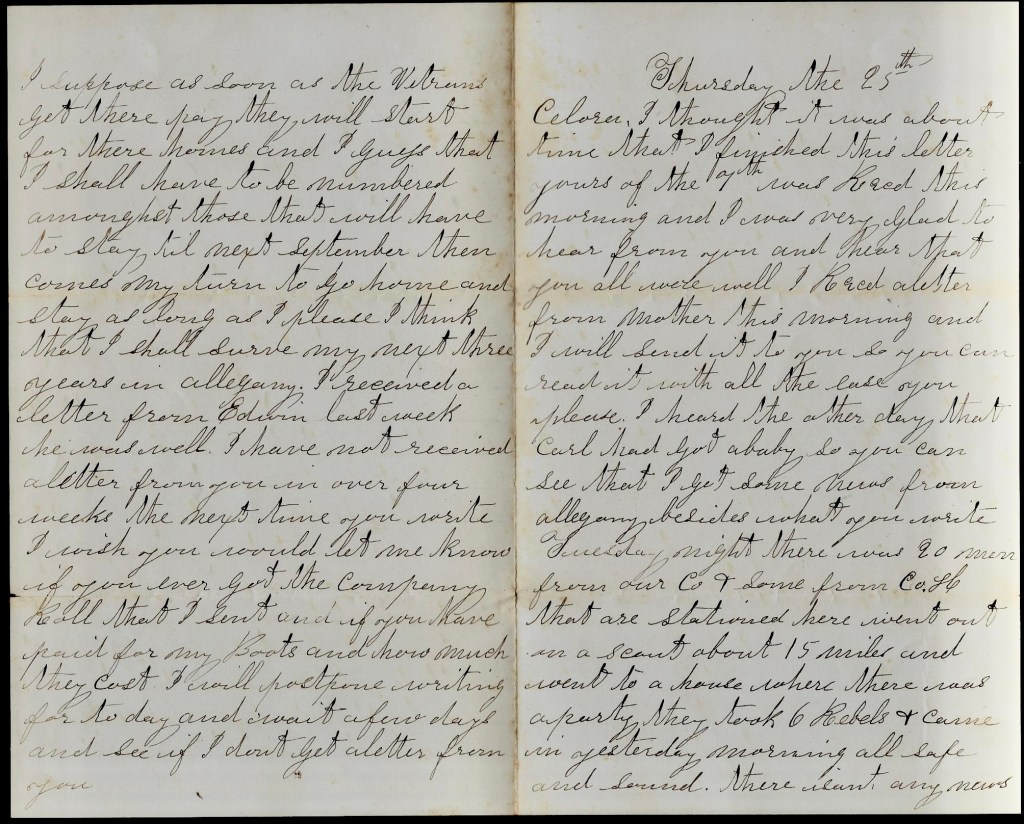 I suppose as soon as the Vetrans
get there pay they will start
for there homes and I guess that
I shall have to be numbered
amonghst those that will have
to stay til next september then
comes my turn to go home and
stay as long as I please I think
that I shall surve my next three
years in allegany. I received a
letter from Edwin last week
he was well. I have not received
a letter from you in over four
weeks the next time you write
I wish you would let me know
if you ever got the Company
Roll that I sent and if you have
paid for my Boots and how much
they cost. I will postpone writing
for to day and wait a few days
and see if I dont get a letter from
you
Thursday the 25th
Celora, I thought it was about
time that I finished this letter
yours of the 7th was Recd this
morning and I was very glad to
hear from you and hear that
you all were well I Recd a letter
from mother this morning and
I will send it to you so you can
read it with all the ease you
please. I heard the other day that
Carl had got a baby so you can
see that I get some news from
allegany besides what you write
Tuesday night there was 20 men
from our Co & some from Co, H
that are stationed here went out
on a scout about 15 miles and
went to a house where there was
a party they took 6 Rebels & came
in yesterday morning all safe
and sound. there isant any news